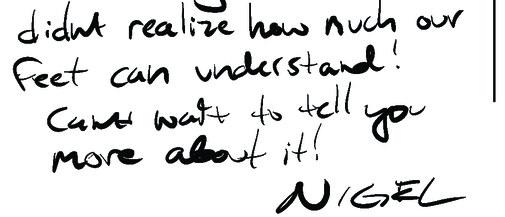 didnt realize how much our
feet can understand!
Cant wait to tell you
more about it!
NIGEL